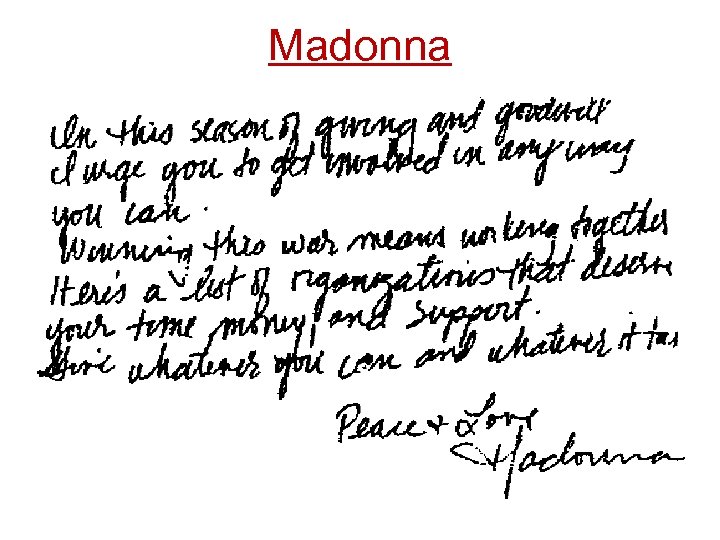 Madonna
In this season of giving and goodwill
I urge you to get involved in any way
you can.
Winning this war means working together
Here's a list of organizations that deserve
your time, money, and support.
Give whatever you can and whatever it has
Peace & Love
Madonna